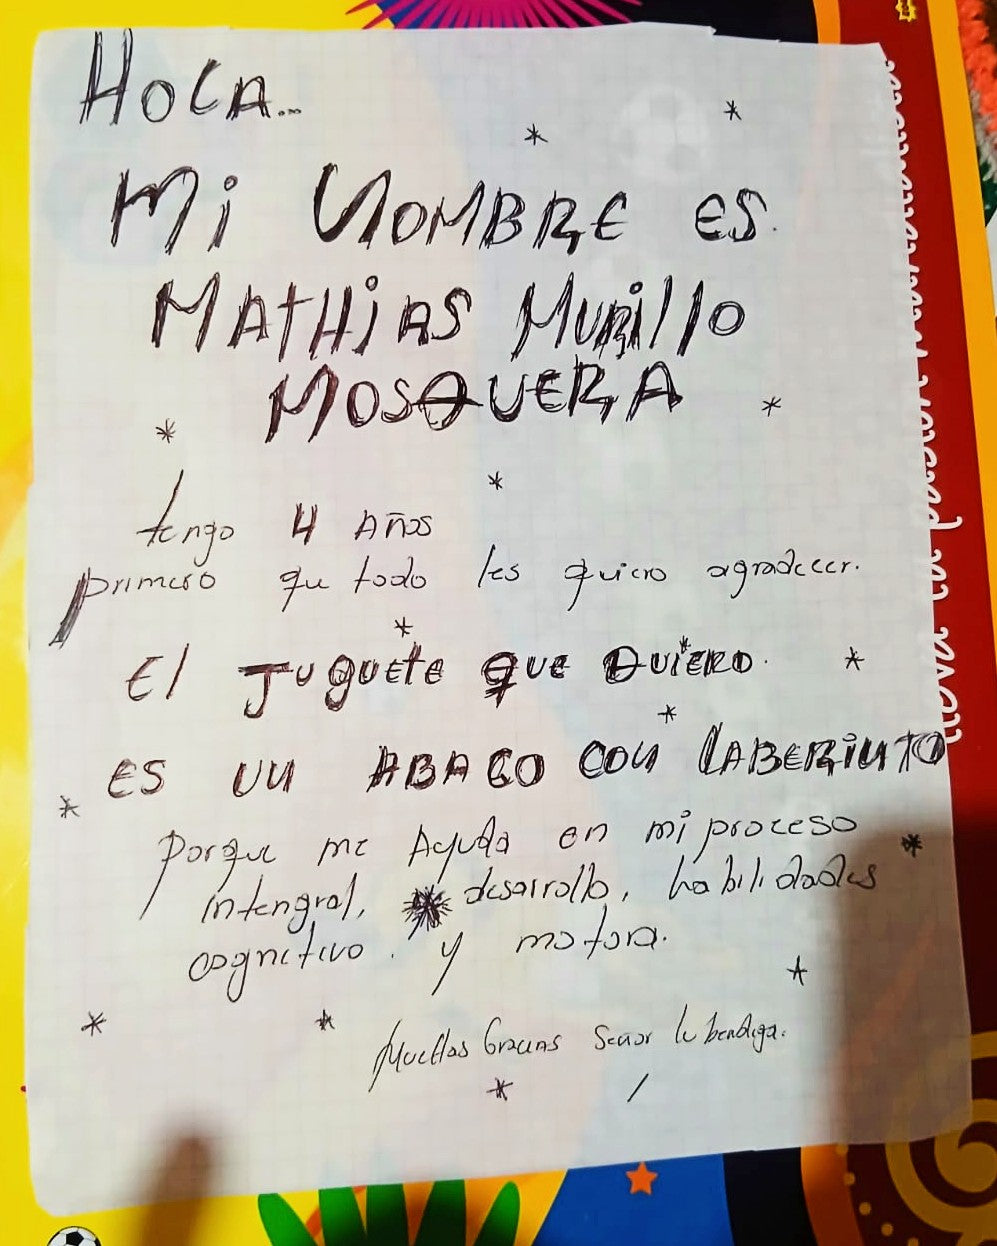 HOLA...
Mi NOMBRE ES.
MATHiAS MURillO
MOSQUERA
tengo 4 AÑOS
primero que todo les quiero agradecer.
El JUguEtE QUE QUiERO.
ES UN ABACO CON LABERiNTO
Porque me Ayuda en mi proceso
intengral, desarrollo, habilidades
cognitivo. y motora.
Muchas Gracias Señor le bendiga.